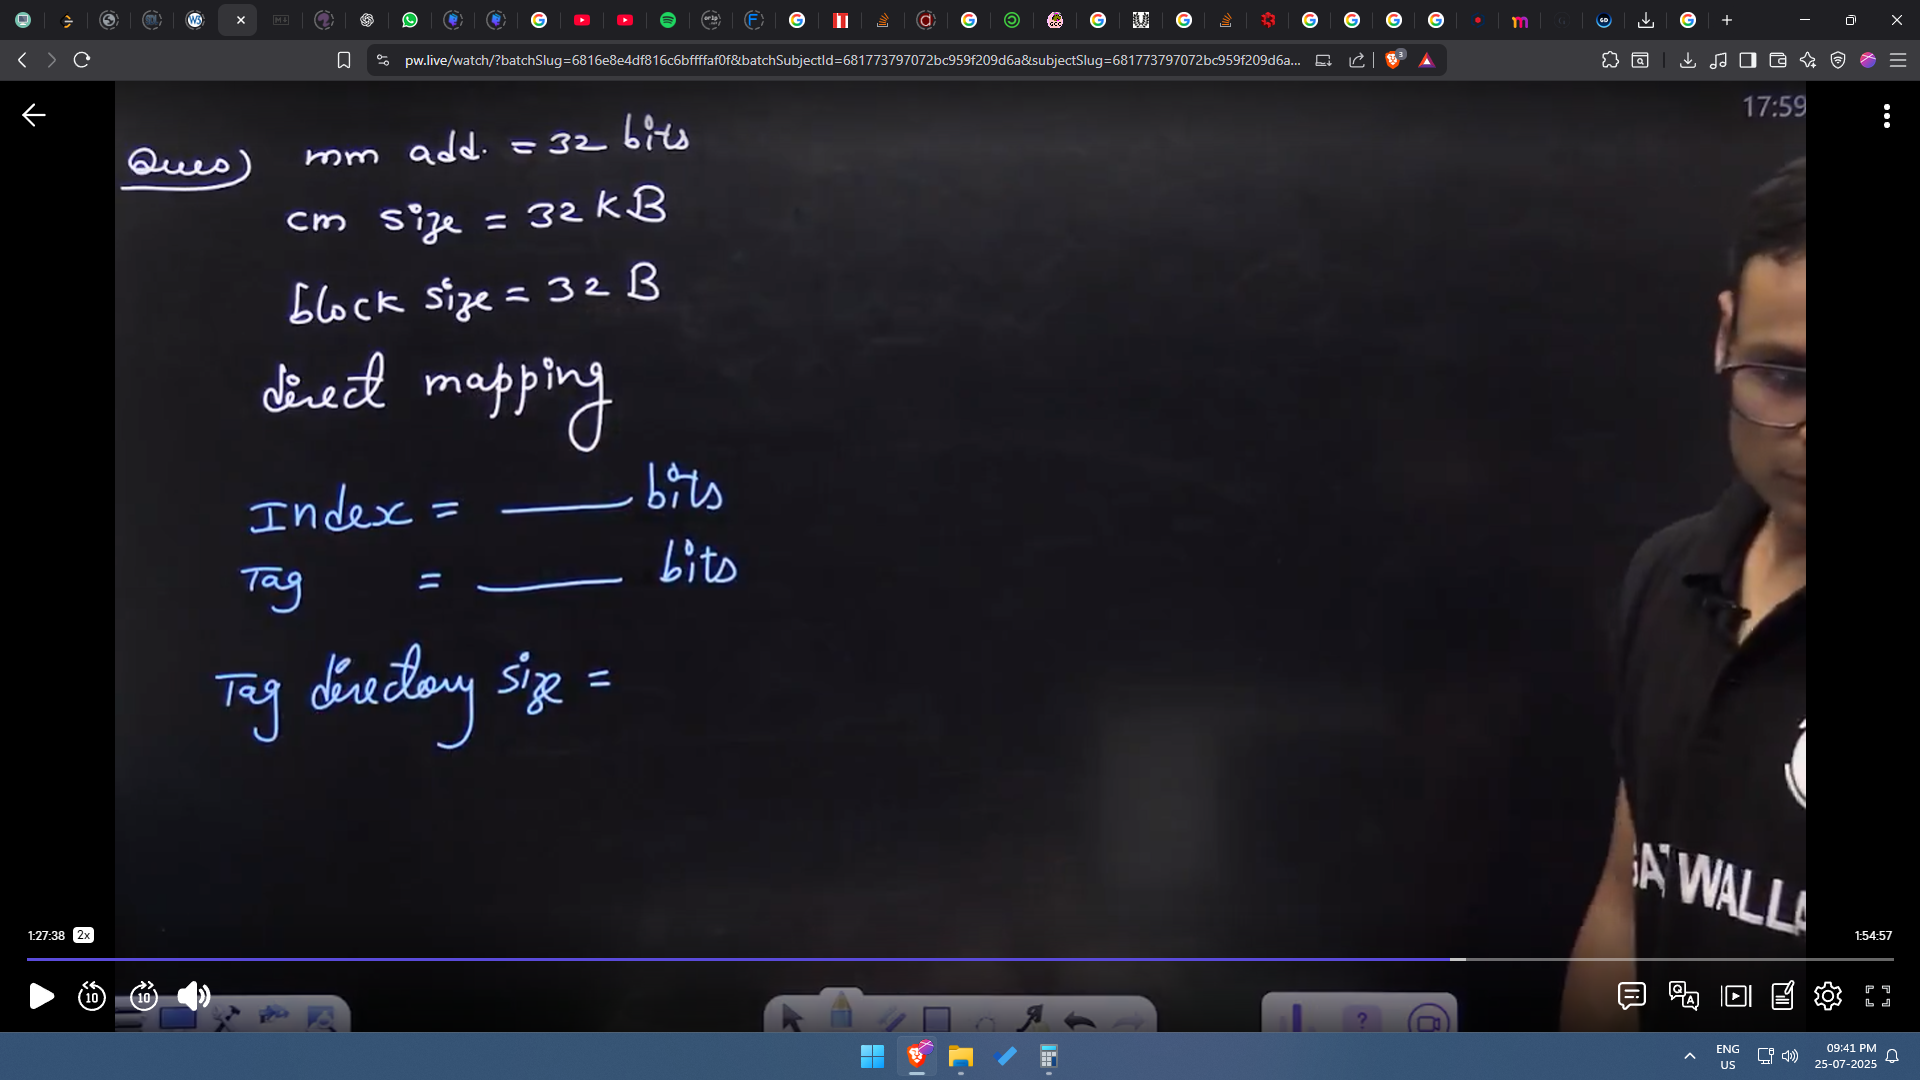 pw.live/watch/?batchSlug=6816e8e4df816c6bffffaf0f&batchSubjectId=681773797072bc959f209d6a&subjectSlug=681773797072bc959f209d6a...
17:59
Ques) mm add. = 32 bits
cm size = 32 KB
block size = 32 B
direct mapping
Index = ____ bits
Tag = ____ bits
Tag directory size =
WALLA
1:27:38 2x
1:54:57
10 10
ENG
US
09:41 PM
25-07-2025